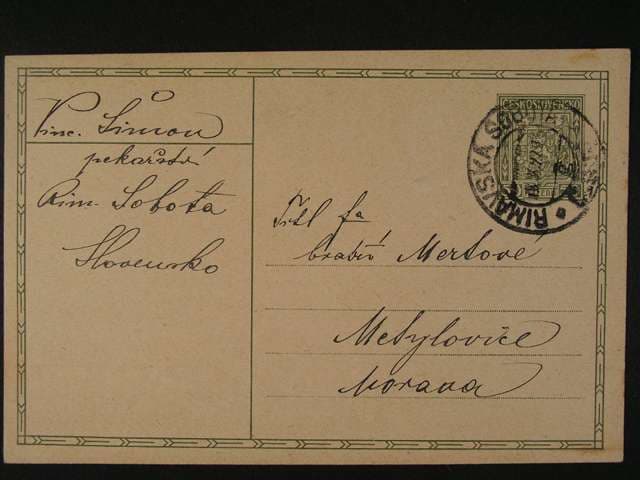 Vinc. Šimon
pekařství
Rim. Sobota
Slovensko
ČESKOSLOVENSKO
RIMAVSKÁ SOBOTA
Titl fa
bratří Mertové
Metylovice
Morava